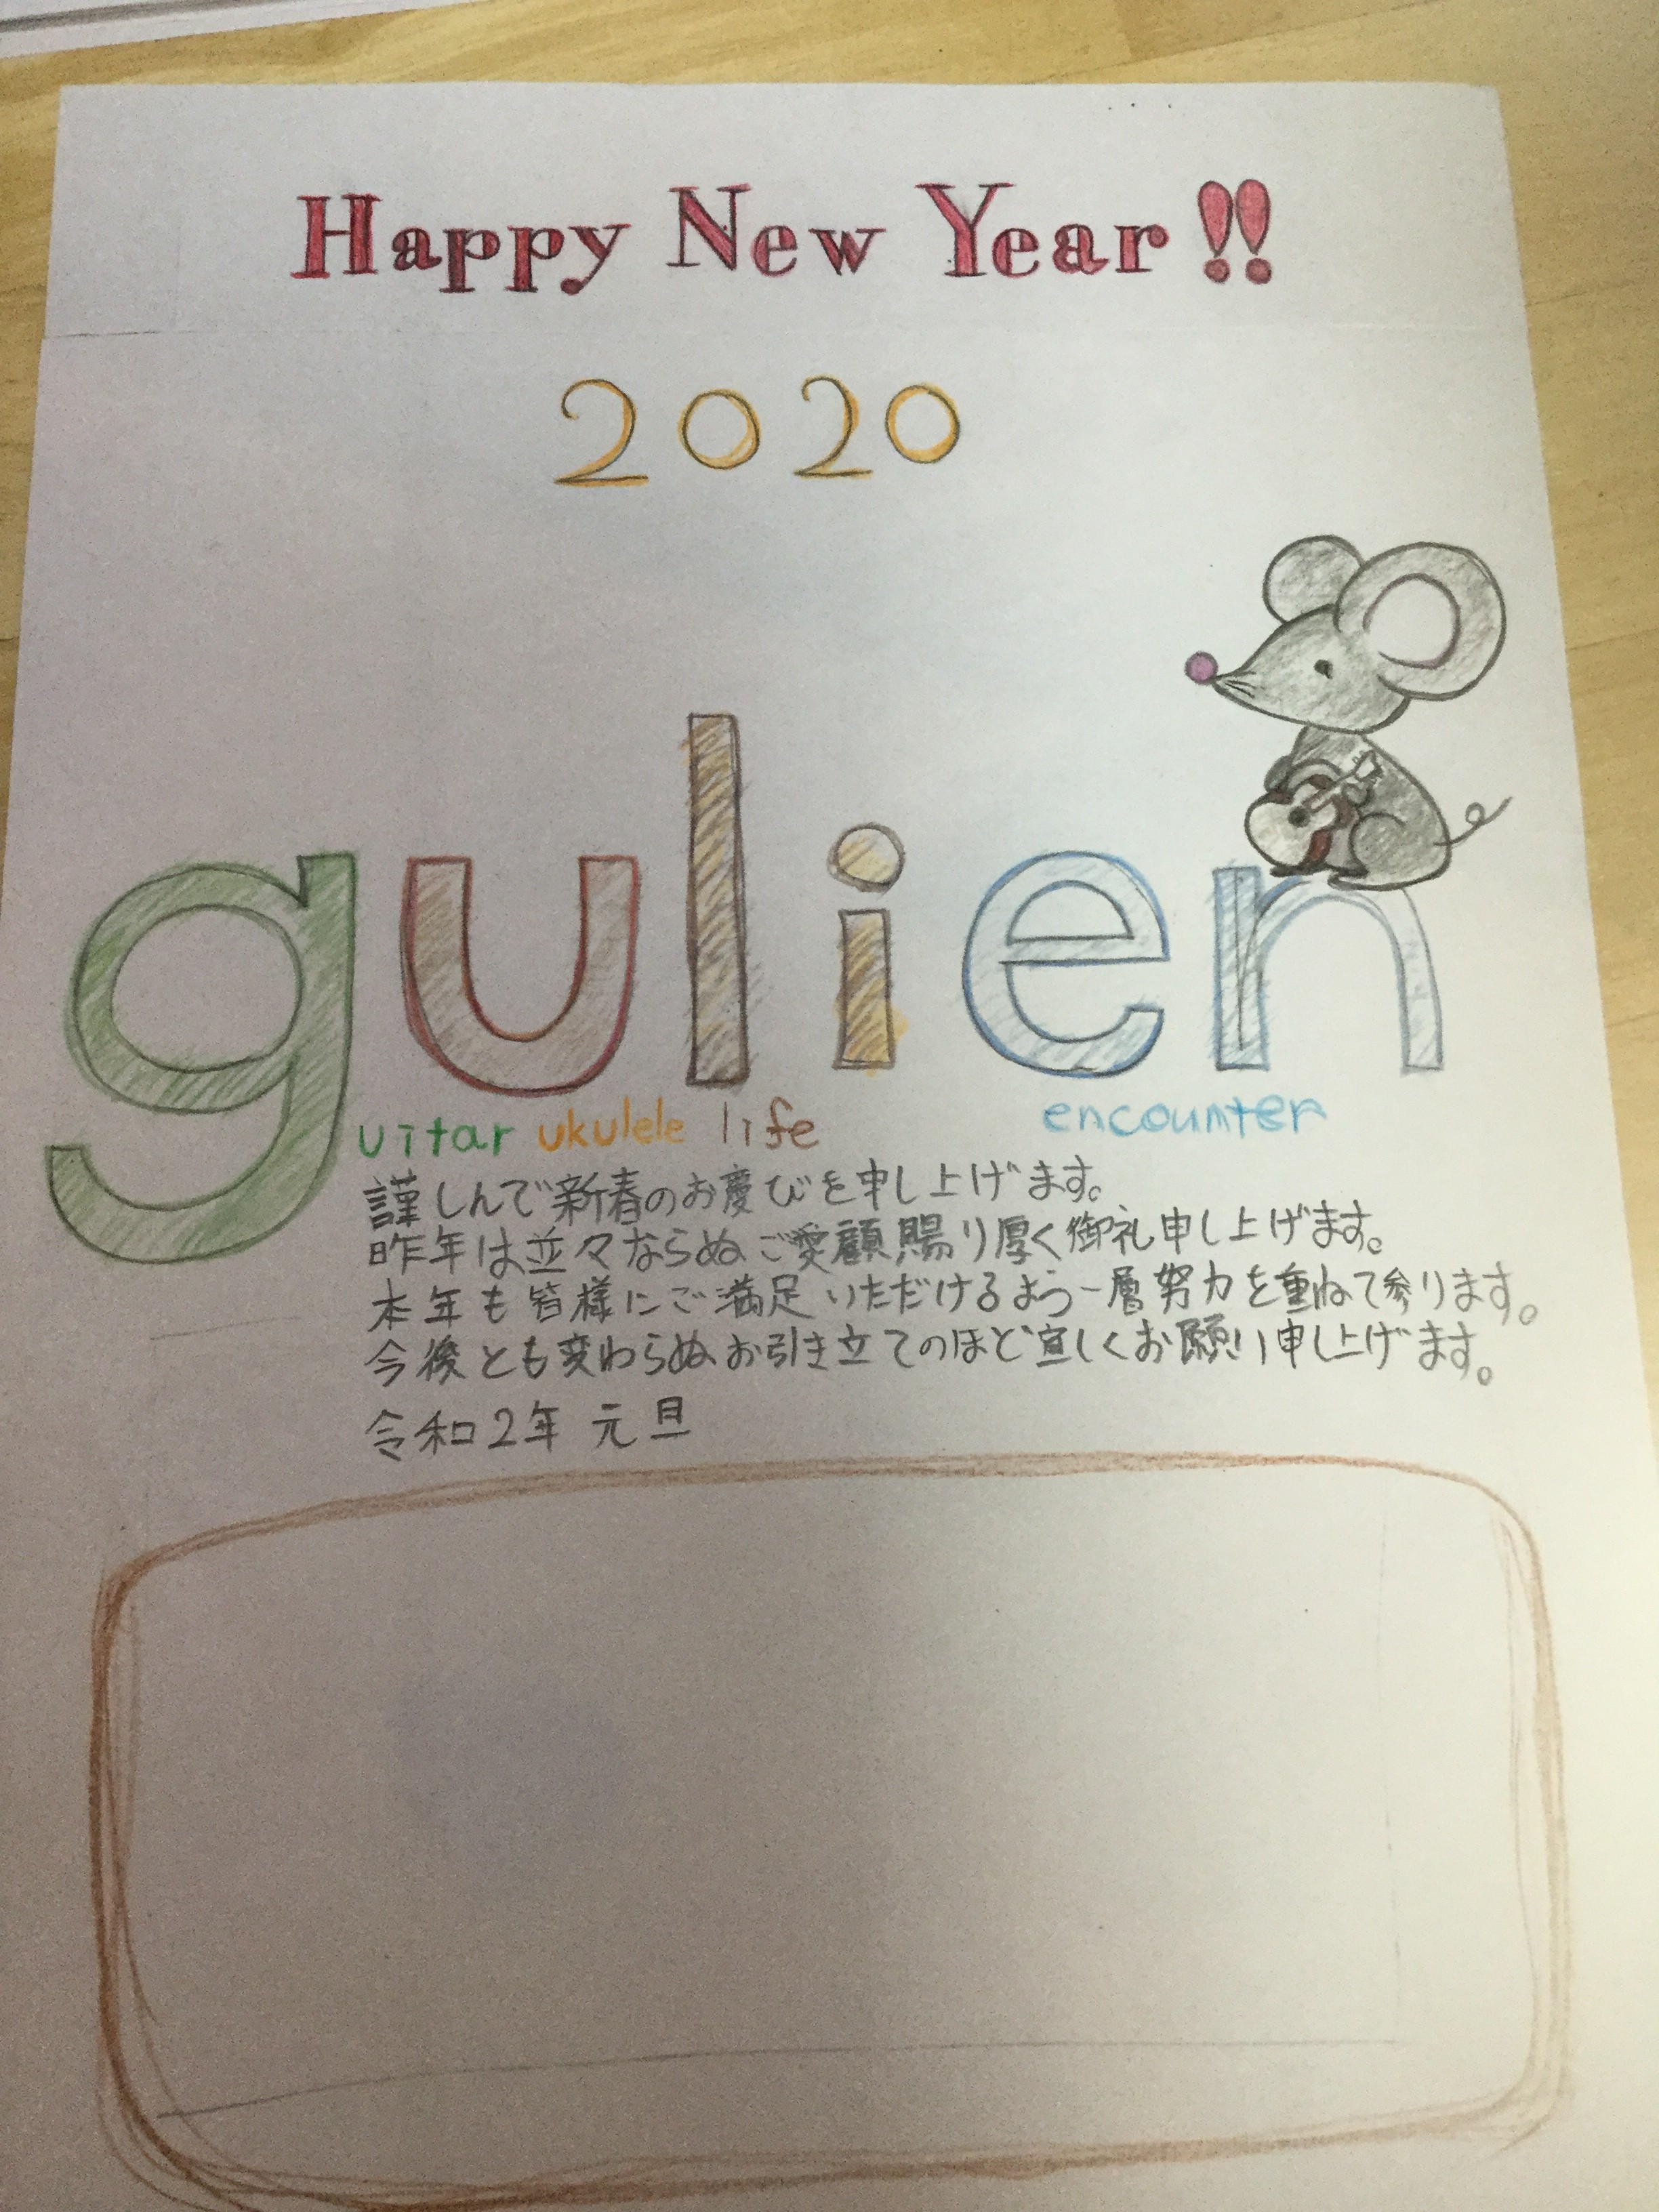 Happy New Year!!
2020
gulien
uitar ukulele life encounter
謹しんで新春のお慶びを申し上げます。
昨年は並々ならぬご愛顧賜り厚く御礼申し上げます。
本年も皆様にご満足いただけるよう一層努力を重ねて参ります。
今後とも変わらぬお引き立てのほど宜しくお願い申し上げます。
令和2年 元旦